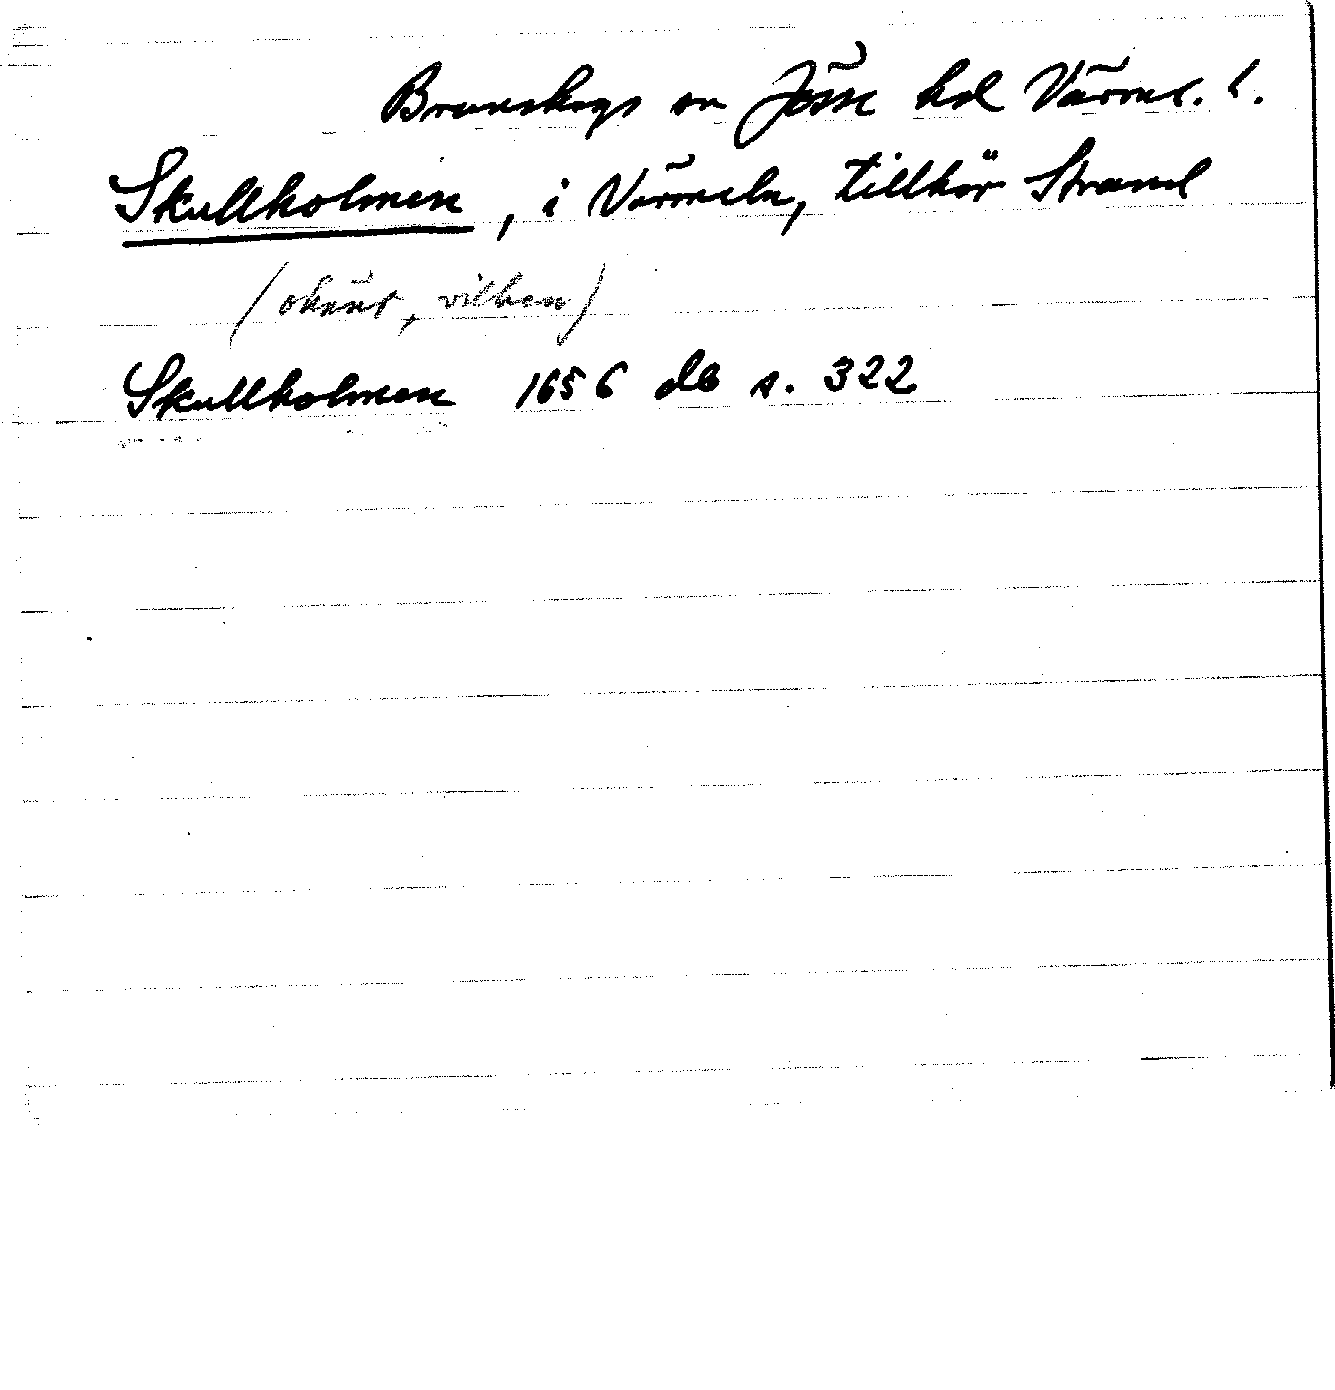 Brunskogs sn Jösse hd Värml. l.
Skullholmen, i Värmeln, tillhör Strand
(okänt, vilken)
Skullholmen 1656 db s. 322